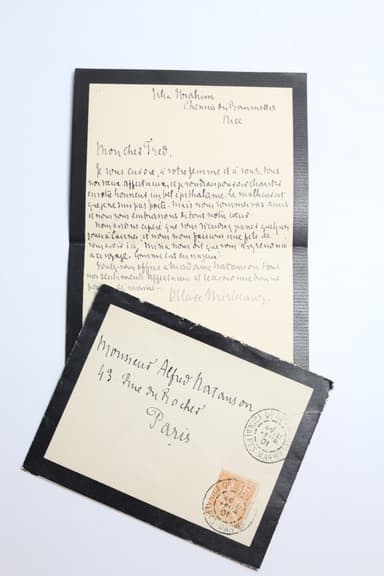 Villa Ibrahim
Chemin des Baumettes
Nice
Mon cher Fred,
Je vous envoie, à votre femme et à vous, tous
nos vœux affectueux, et je voudrais pouvoir chanter
en votre honneur un bel épithalame. Le malheur est
que je ne suis pas poète. Mais nous sommes vos amis
et nous vous embrassons de tout notre cœur.
Nous avions espéré que vous viendriez passer quelques
jours à Cannes, et nous nous faisions une fête de
vous voir ici. Misia nous dit que vous
ce voyage. Comme c'est
à Madame Natanson tous
nos sentiments affectueux et
Octave Mirbeau
Monsieur Alfred Natanson
43 Rue du Rocher
Paris
15